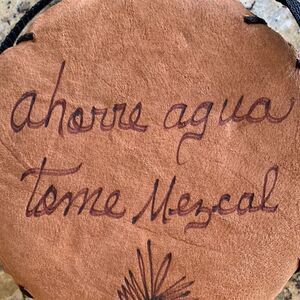 ahorre agua
tome Mezcal